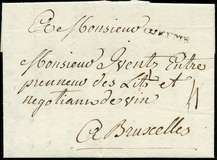 A Monsieur
Monsieur Yvents Entre
prenneur des Lits et
negotiant de vin
a Bruxcelles